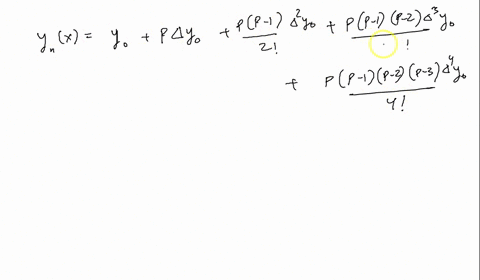 yₙ(x) = y₀ + pΔy₀ + p(p-1)Δ²y₀/2! + p(p-1)(p-2)Δ³y₀/ !
+ p(p-1)(p-2)(p-3)Δ⁴y₀/4!